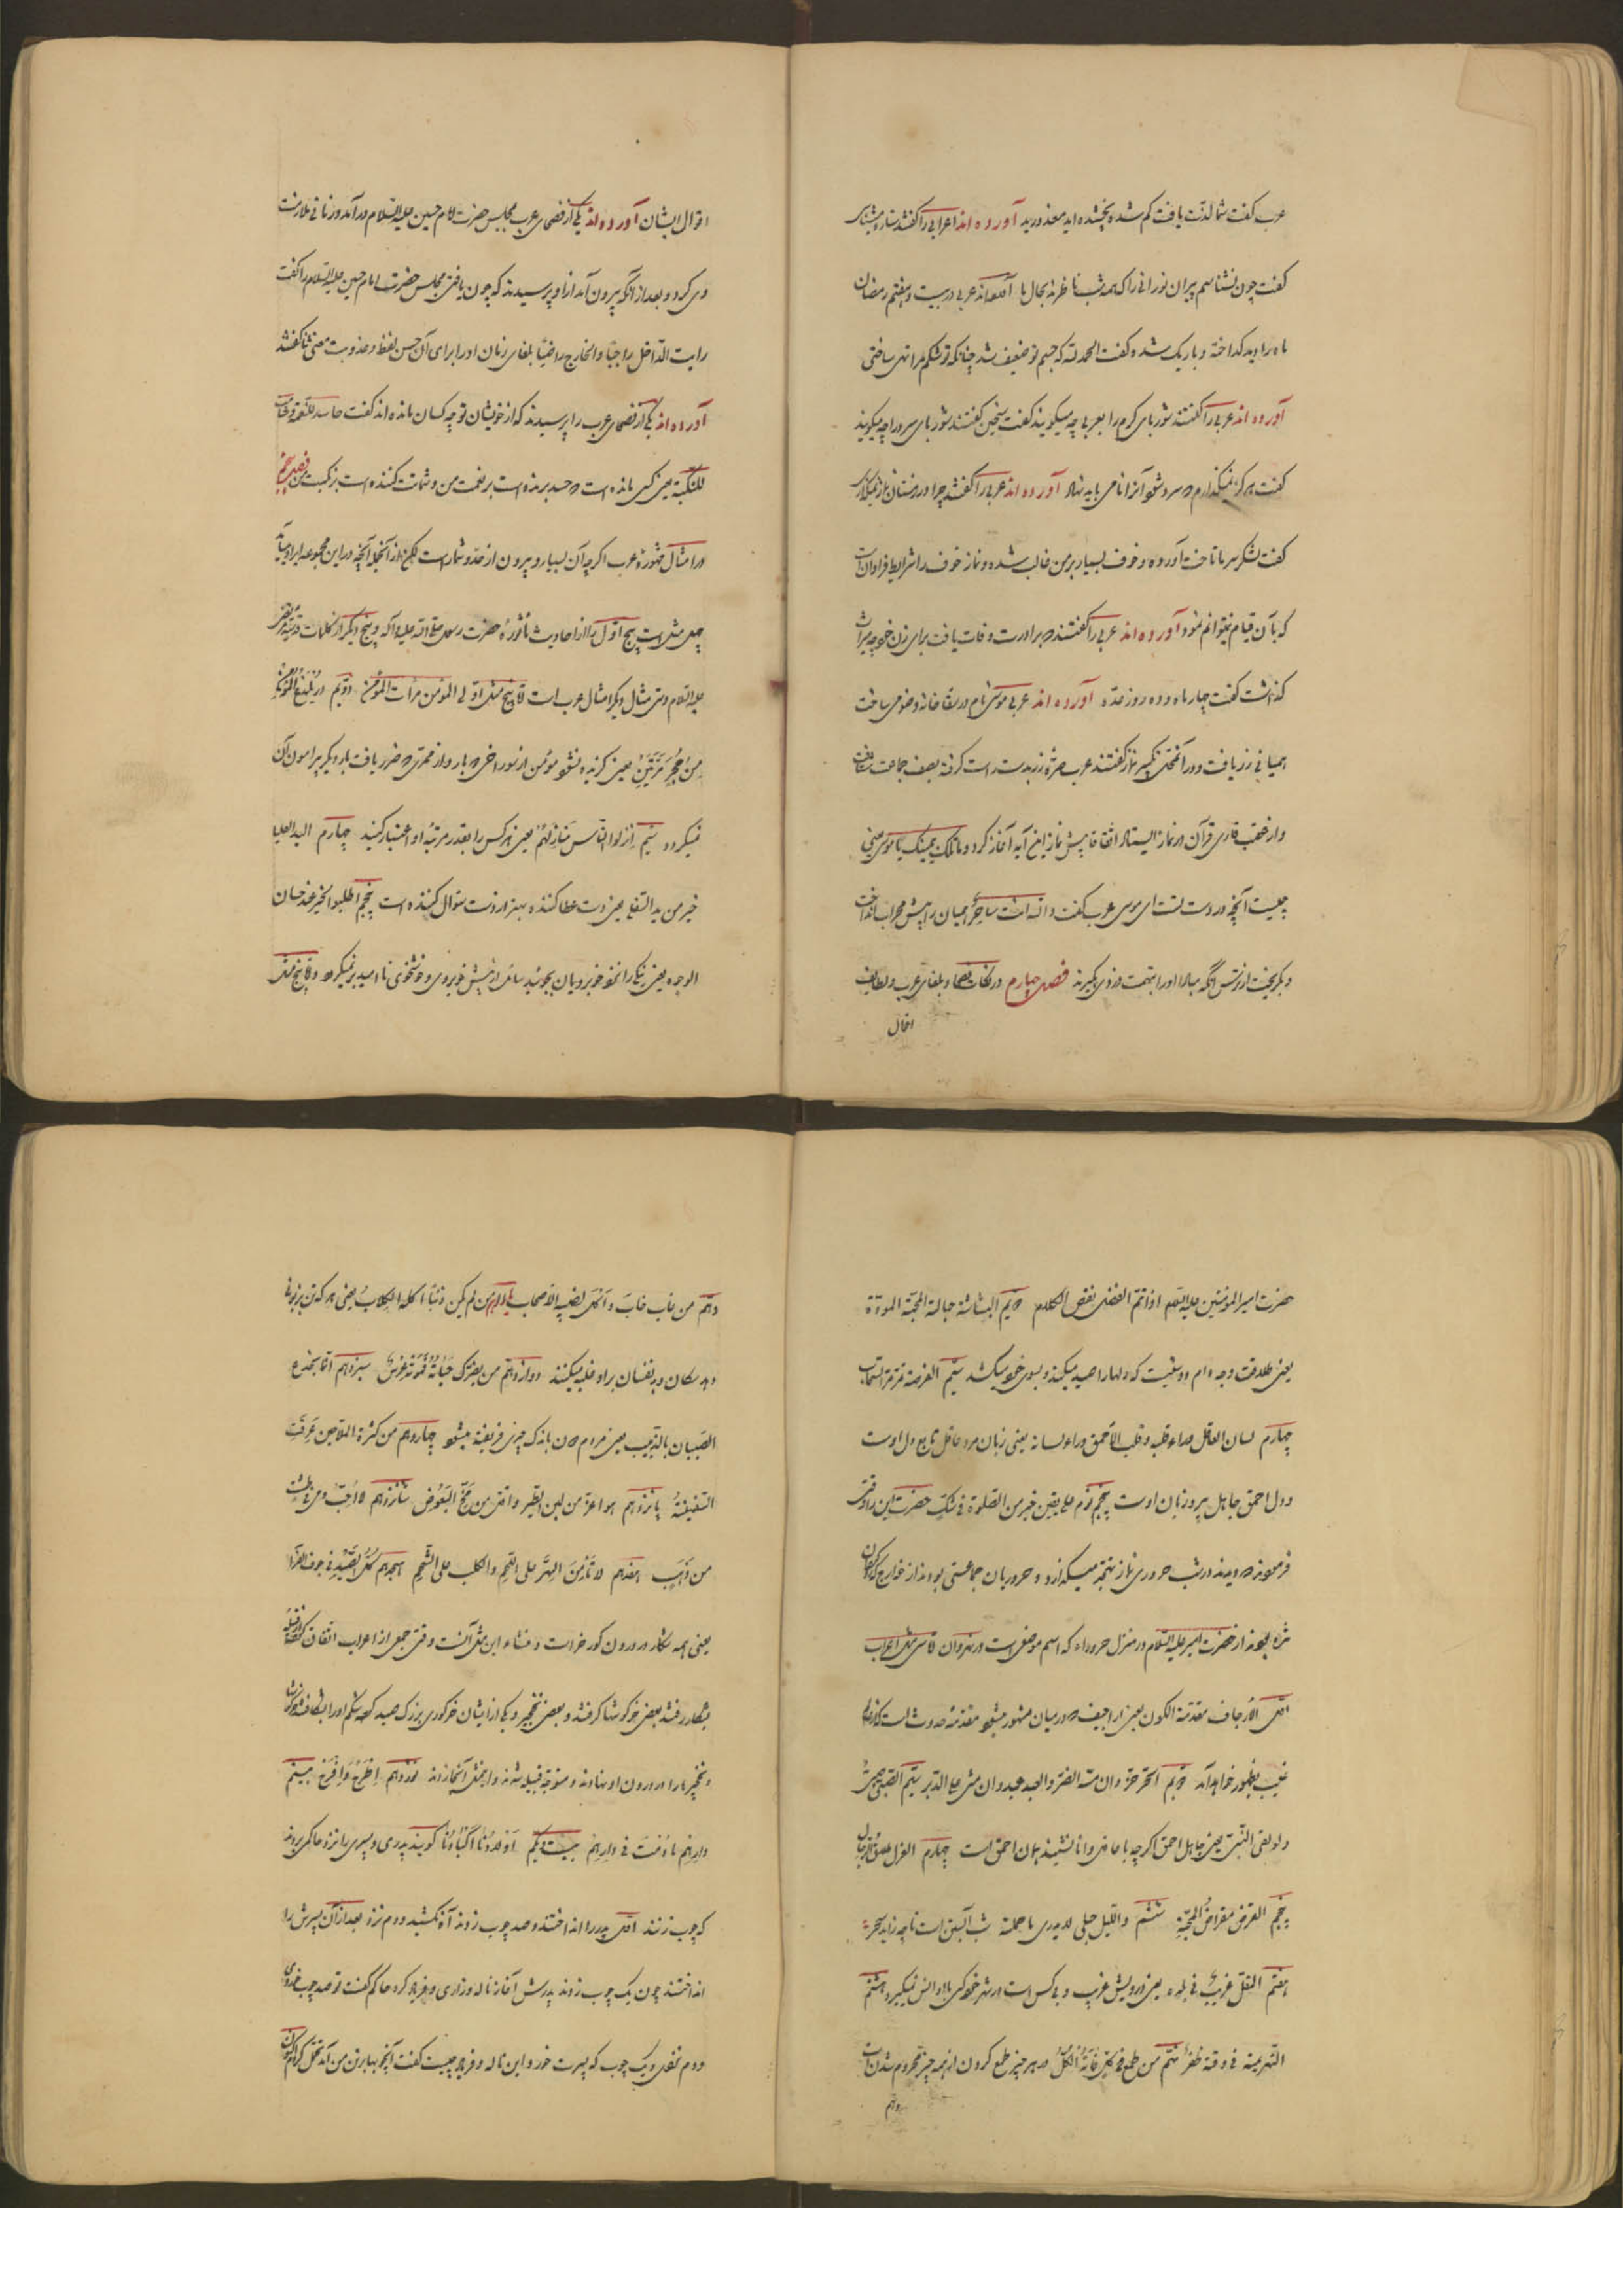 عرب گفت شما لذّت یافت کم شده نچشیده اید معذورید آورده اند اعرابی را گفتند ستاره میشناسی
گفت چون نشناسم پیران نورانی را که همه شب ناظرند بحال ما آورده اند عربی در بیست و هفتم رمضان
ماه را دید گداخته و باریک شده گفت الحمد لله که جسم تو ضعیف شد چنانکه تو شکم مرا تهی ساختی
آورده اند عربی را گفتند شوربای گرم را بعربی چه میگویند گفت سخین گفتند شوربای سرد را چه میگویند
گفت هرگز نمیگذارم که سرد شود آنرا نامی باید نهاد آورده اند عربی را گفتند چرا در زمستان نماز نمیگذاری
گفت لشکر سرما تاخت آورده و خوف بسیار بر من غالب شده و نماز خوف را شرایط فراوان است
که بآن قیام نمیتوانم نمود آورده اند عربی را گفتند که برادرت وفات یافت برای زن خود چه میراث
گذاشت گفت چهار ماه و ده روز عدّه آورده اند عربی موسی نام در سقاخانه وضو می ساخت
همیانی زر یافت و در آنمحل تکبیر نماز گفتند عرب صرّه زر بدست راست گرفته بصف جماعت
و از عقب قاری قرآن در نماز ایستاد اتفاقا پیش نماز این آیه آغاز کرد و ما تلک بیمینک یا موسی یعنی
چیست آنچه در دست تست ای موسی عرب گفت والله انت ساحرٌ همیان را پیش محراب انداخت
و بگریخت از ترس آنکه مبادا او را بتهمت دزدی بگیرند فصل چهارم در نکات فصحا و بلغای عرب و لطایف
اقوال
اقوال ایشان آورده اند یکی از فصحای عرب بمجلس حضرت امام حسین علیه السلام درآمد و زمانی ملازمت
وی کرد و بعد از آنکه بیرون آمد از او پرسیدند که چون یافتی مجلس حضرت امام حسین علیه السلام را گفت
رایت الدّاخل راجیًا و الخارج راضیًا بلغای زمان او را برای آن حسن لفظ و عذوبت معنی ثنا گفتند
آورده اند یکی از فصحای عرب را پرسیدند که از خویشان تو چه کسان مانده اند گفت حاسد للنّعمة و شامت
للنّکبة یعنی کسی مانده است که حسد برنده است بر نعمت من و شماتت کننده است بر نکبت من فصل پنجم
در امثال مشهوره عرب اگرچه آن بسیار و بیرون از حدّ و شمار است لکن از آنجمله آنچه در این مجموعه ایراد مییابد
چهل مثل است پنج اوّل از احادیث ماثورهٔ حضرت رسول صلی الله علیه و آله و پنج دیگر از کلمات
علیه السلام و سی مثال دیگر امثال عرب است امّا پنج مثل اوّلی المؤمن مرآت المؤمن دوّیم لا یلدغ المؤمن
من جُحرٍ مَرّتَین یعنی گزیده نشود مؤمن از سوراخی دو بار و از ممرّی که ضرر یافت بار دیگر پیرامون آن
نمیگردد سیّم اَنزلوا النّاس مَنازِلَهُم یعنی هرکس را بقدر مرتبهٔ او اعتبار کنید چهارم الید العلیا
خیر من ید السّفلی یعنی دست عطا کننده بهتر از دست سؤال کننده است پنجم اطلبوا الخیر عند حسان
الوجوه یعنی نیکی را نزد خوبرویان بجوئید سائل از پیش خوبروی و خوشخوی ناامید برنمیگردد و امّا پنج مثل
حضرت امیر المؤمنین علیه السلام اذا تمّ العقل نقص الکلام دویم البشاشة حبالة المحبّة المودّة
یعنی طلاقت وجه دام دوستیست که دلها را صید میکند و بسوی خود میکشد سیّم الفرصة تمرّ مرّ السّحاب
چهارم لسان العاقل وراء قلبه و قلب الاَحمق وراء لسانه یعنی زبان مرد عاقل تابع دل اوست
و دل احمق جاهل پیرو زبان اوست پنجم نوم علی یقین خیر من الصّلوة فی شکّ حضرت این را وقتی
فرمودند که دیدند در شب حروری نماز تهجّد میگذارد و حروریان جماعتی بودند از خوارج که
شده بودند از حضرت امیر علیه السلام در منزل حروراء که اسم موضعی است در نهروان امّا سی مثل اعراب
اوّل الاَرجاف مقدمة الکون یعنی اراجیف که در میان مشهور میشود مقدمهٔ حدوث است که از
غیب بظهور خواهد آمد دویم الحرّ حرّ و ان مسّه الضّر و العبد عبد و ان مشی علی الدّر سیّم الصّبی صبیّ
و لو لقی النّبی یعنی جاهل احمق اگرچه با عالم دانا نشیند همان احمق است چهارم العزل طلاق الرجال
پنجم القرض مقراضُ المحبّةِ ششم و اللّیل حبلی لا یدری ما حملته شب آبستن است تا چه زاید سحر
هفتم المقلّ غریبٌ فی بلده یعنی درویش غریب و بی کس است در شهر خود کسی با او انس نمیگیرد هشتم
الهزیمة فی وقته ظفرٌ نهم من طمع فی الکلّ فاته الکلّ در هر چیز طمع کردن از همه چیز محروم شدن است
دهم
دهم من هاب خاب و اَکل نصیبه الاصحاب یازدهم مَن لم یکن ذئبًا اکلته الکلابُ یعنی هر که تن بزبونی
دهد سگان و بد نفسان بر او غلبه میکنند دوازدهم سیزدهم انّما یخدع
الصّبیان بالزّبیب یعنی مردم دون باندک چیزی فریفته میشود چهاردهم من کثرة الملّاحین غرقت
السّفینةُ پانزدهم هو اعزّ من لبن الطّیر و اقلّ من مُخّ البَعُوض شانزدهم لا اُحِبّ دمی فی طشت
من ذَهَب هفدهم لا تَأمَنَ الهِرّ علی اللّحم و الکلب علی الشّحم هجدهم کلّ الصّیدِ فی جوف الفرا
یعنی همه شکار در درون گورخر است و منشاء این مثل آنست وقتی جمعی از اعراب اتفاق
بشکار رفتند بعضی خرگوشها گرفتند و بعضی نخجیر و یکی از ایشان خرگوری بزرگ صید کرد شکم او را
و نخجیرها را در درون او نهادند و متوجّه قبیله شدند و این مثل آنجا زدند نوزدهم اِطرَح وَ افرَح بیستم
دارِهم ما دُمتَ فی دارهم بیست و یکم اَولادُنا اکبادُنا گویند پدری و پسری را نزد حاکمی بردند
که چوب زنند اوّل پدر را انداختند و صد چوب زدند آه نکشید و دم نزد بعد از آن پسرش را
انداختند چون یک چوب زدند پدرش آغاز ناله و زاری و فریاد کرد حاکم گفت تو صد چوب خوردی
و دم نزدی و یک چوب که پسرت خورد این ناله و فریاد چیست گفت آنچوبها بر تن من آمد تحمّل کردم